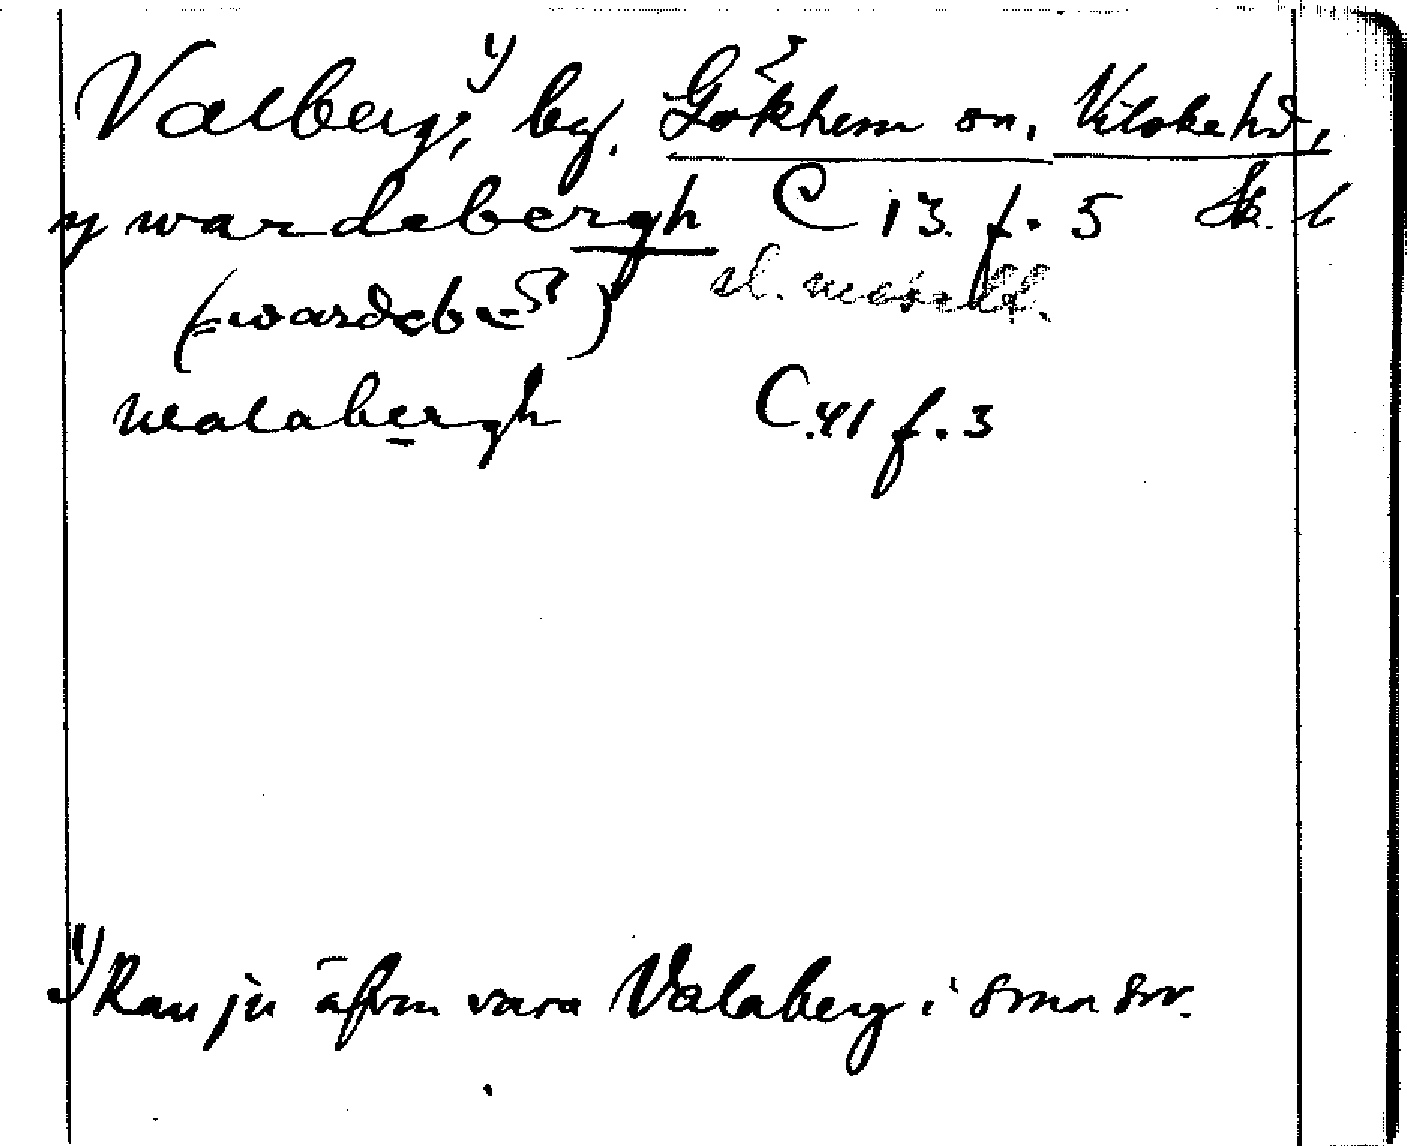 Valberg,¹⁾ by. Gökhem sn, Vilske hd,
y wardebergh C 13. f. 5 Sk. l
(=wardeb
walabergh C.41 f. 3
¹⁾ Kan ju äfven vara Valaberg i smn sn.